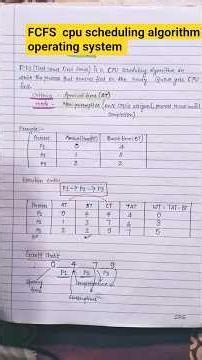 FCFS cpu scheduling algorithm
operating system
FCFS (First Come First Serve) is a CPU scheduling algorithm in
which the process that arrives first in the ready Queue gets CPU
first.
Criteria - Arrival time (AT)
Mode - Non-preemptive (once CPU is assigned, process runs until
completion)
Example:-
Process Arrival time (AT) Burst time (BT)
P1 0 4
P2 1 3
P3 2 2
Execution order
P1 → P2 → P3
Process AT BT CT TAT WT = TAT - BT
P1 0 4 4 4 0
P2 1 3 7 6 3
P3 2 2 9 7 5
Gantt Chart
0 4 7 9
P1 P2 P3